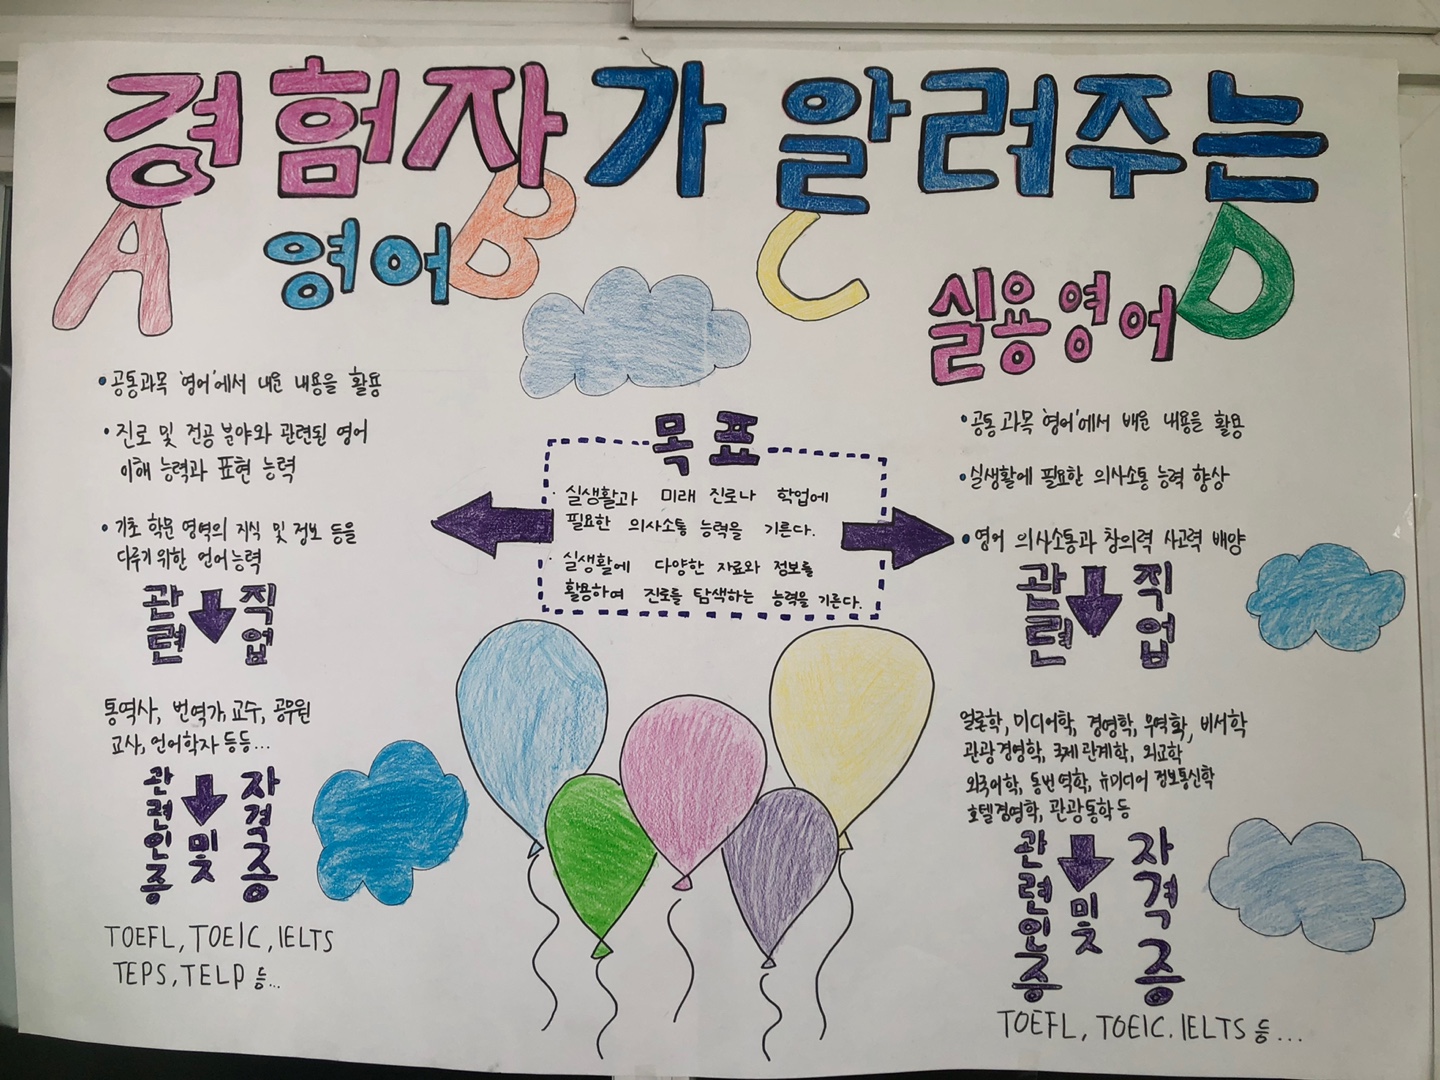 경험자가 알려주는
A B C D
영어
실용영어
• 공통과목 '영어'에서 내운 내용을 활용
• 진로 및 전공 분야와 관련된 영어
이해 능력과 표현 능력
• 기초 학문 영역의 지식 및 정보 등을
다루기 위한 언어능력
관련 직업
통역사, 번역가, 교수, 공무원
교사, 언어학자 등등...
관련인증 및 자격증
TOEFL, TOEIC, IELTS
TEPS, TELP 등...
목표
· 실생활과 미래 진로나 학업에
필요한 의사소통 능력을 기른다.
· 실생활에 다양한 자료와 정보를
활용하여 진로를 탐색하는 능력을 기른다.
• 공통 과목 '영어'에서 배운 내용을 활용
• 실생활에 필요한 의사소통 능력 향상
• 영어 의사소통과 창의력 사고력 배양
관련 직업
언론학, 미디어학, 경영학, 무역학, 비서학
관광경영학, 국제관계학, 외교학
외국어학, 통번역학, 뉴미디어 정보통신학
호텔경영학, 관광통학 등
관련인증 및 자격증
TOEFL, TOEIC. IELTS 등...